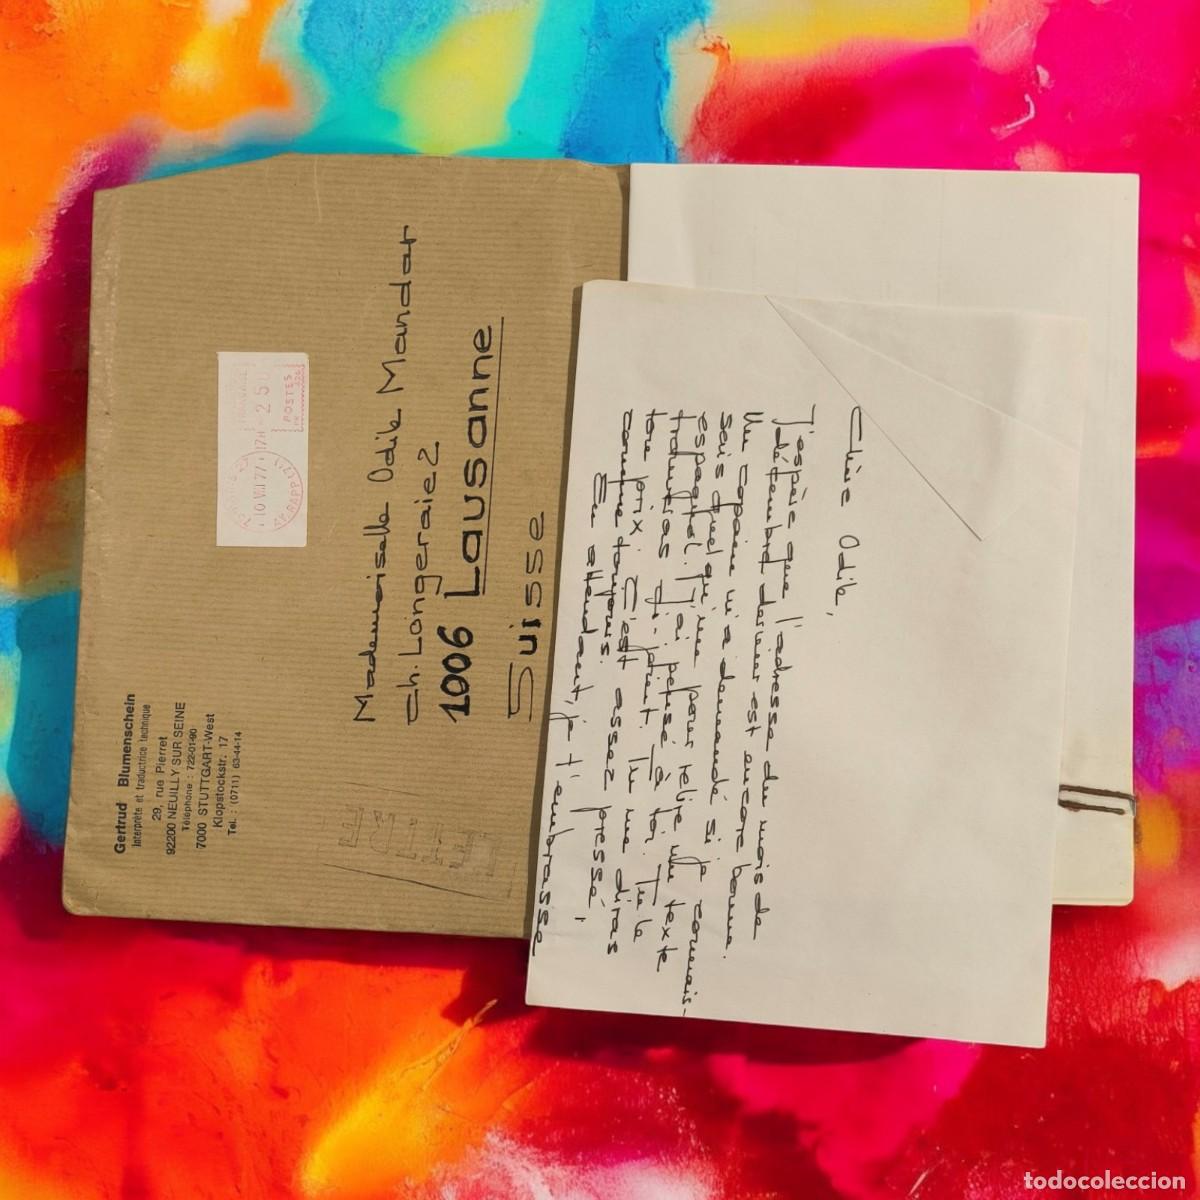 Gertrud Blumenschein
Interprète et traductrice technique
29, rue Pierret
92200 NEUILLY SUR SEINE
Téléphone : 722-01-90
7000 STUTTGART-West
Klopstockstr. 17
Tel. : (0711) 63-44-14
17H
10 VII 77
25
POSTES
Mademoiselle Odile Mandar
Ch. Longeraie 2
1006 Lausanne
Suisse
LETTRE
Chère Odile,
J'espère que l'adresse du mois de
décembre dernier est encore bonne.
Un copain m'a demandé si je connais-
sais quelqu'un pour relire un texte
espagnol. J'ai pensé à toi. Tu le
traduiras ci-joint. Tu me diras
ton prix. C'est assez pressé,
comme toujours.
En attendant, je t'embrasse
todocoleccion